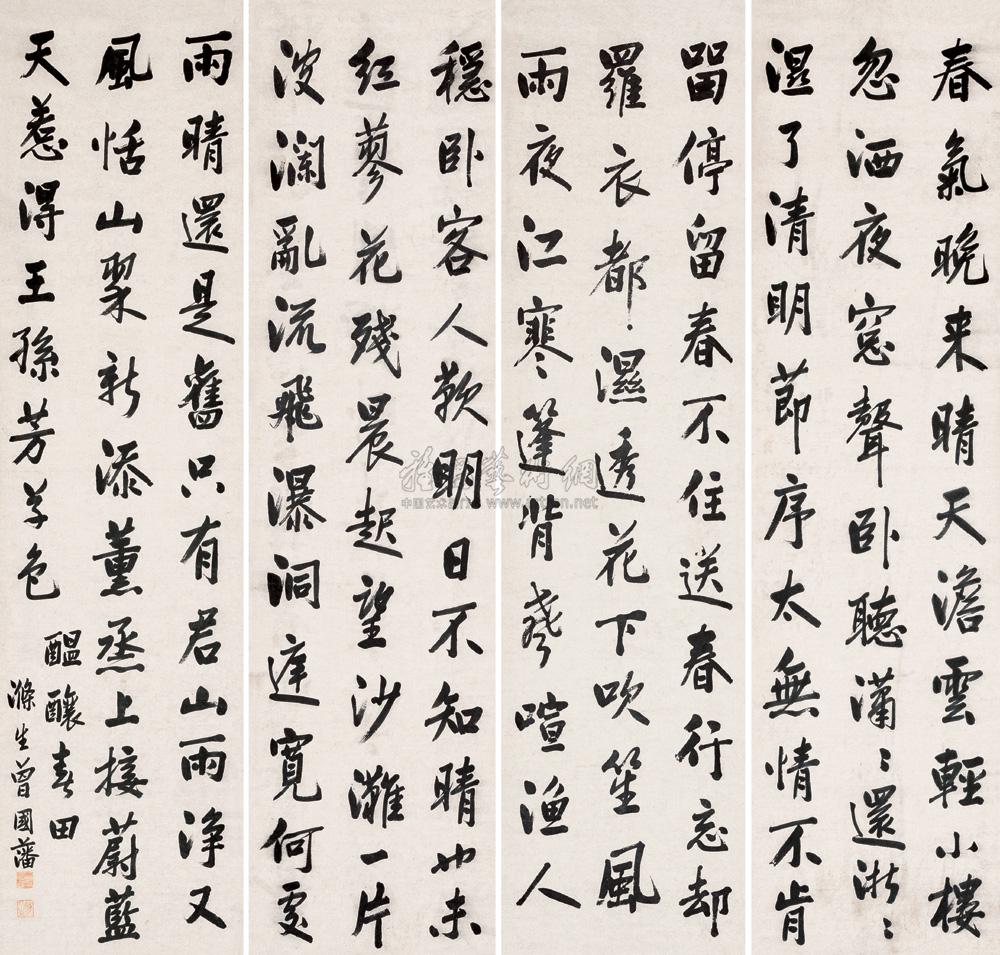 春氣晚来晴天澹雲輕小樓
忽洒夜窓聲卧聽瀟〻還淅〻
濕了清明莭序太無情不肯
畱停留春不住送春行忘却
羅衣都濕透花下吹笙風
雨夜江寒篷背聲喧漁人
穩卧客人歎明日不知晴也未
红蓼花殘晨起望沙灘一片
波瀾亂流飛瀑洞庭寬何處
雨晴還是舊只有君山雨净又
風恬山翠新添薰烝上接蔚藍
天惹得王孫芳草色
醖釀春田
滌生曾國藩
雅昌藝術網
www.artron.net